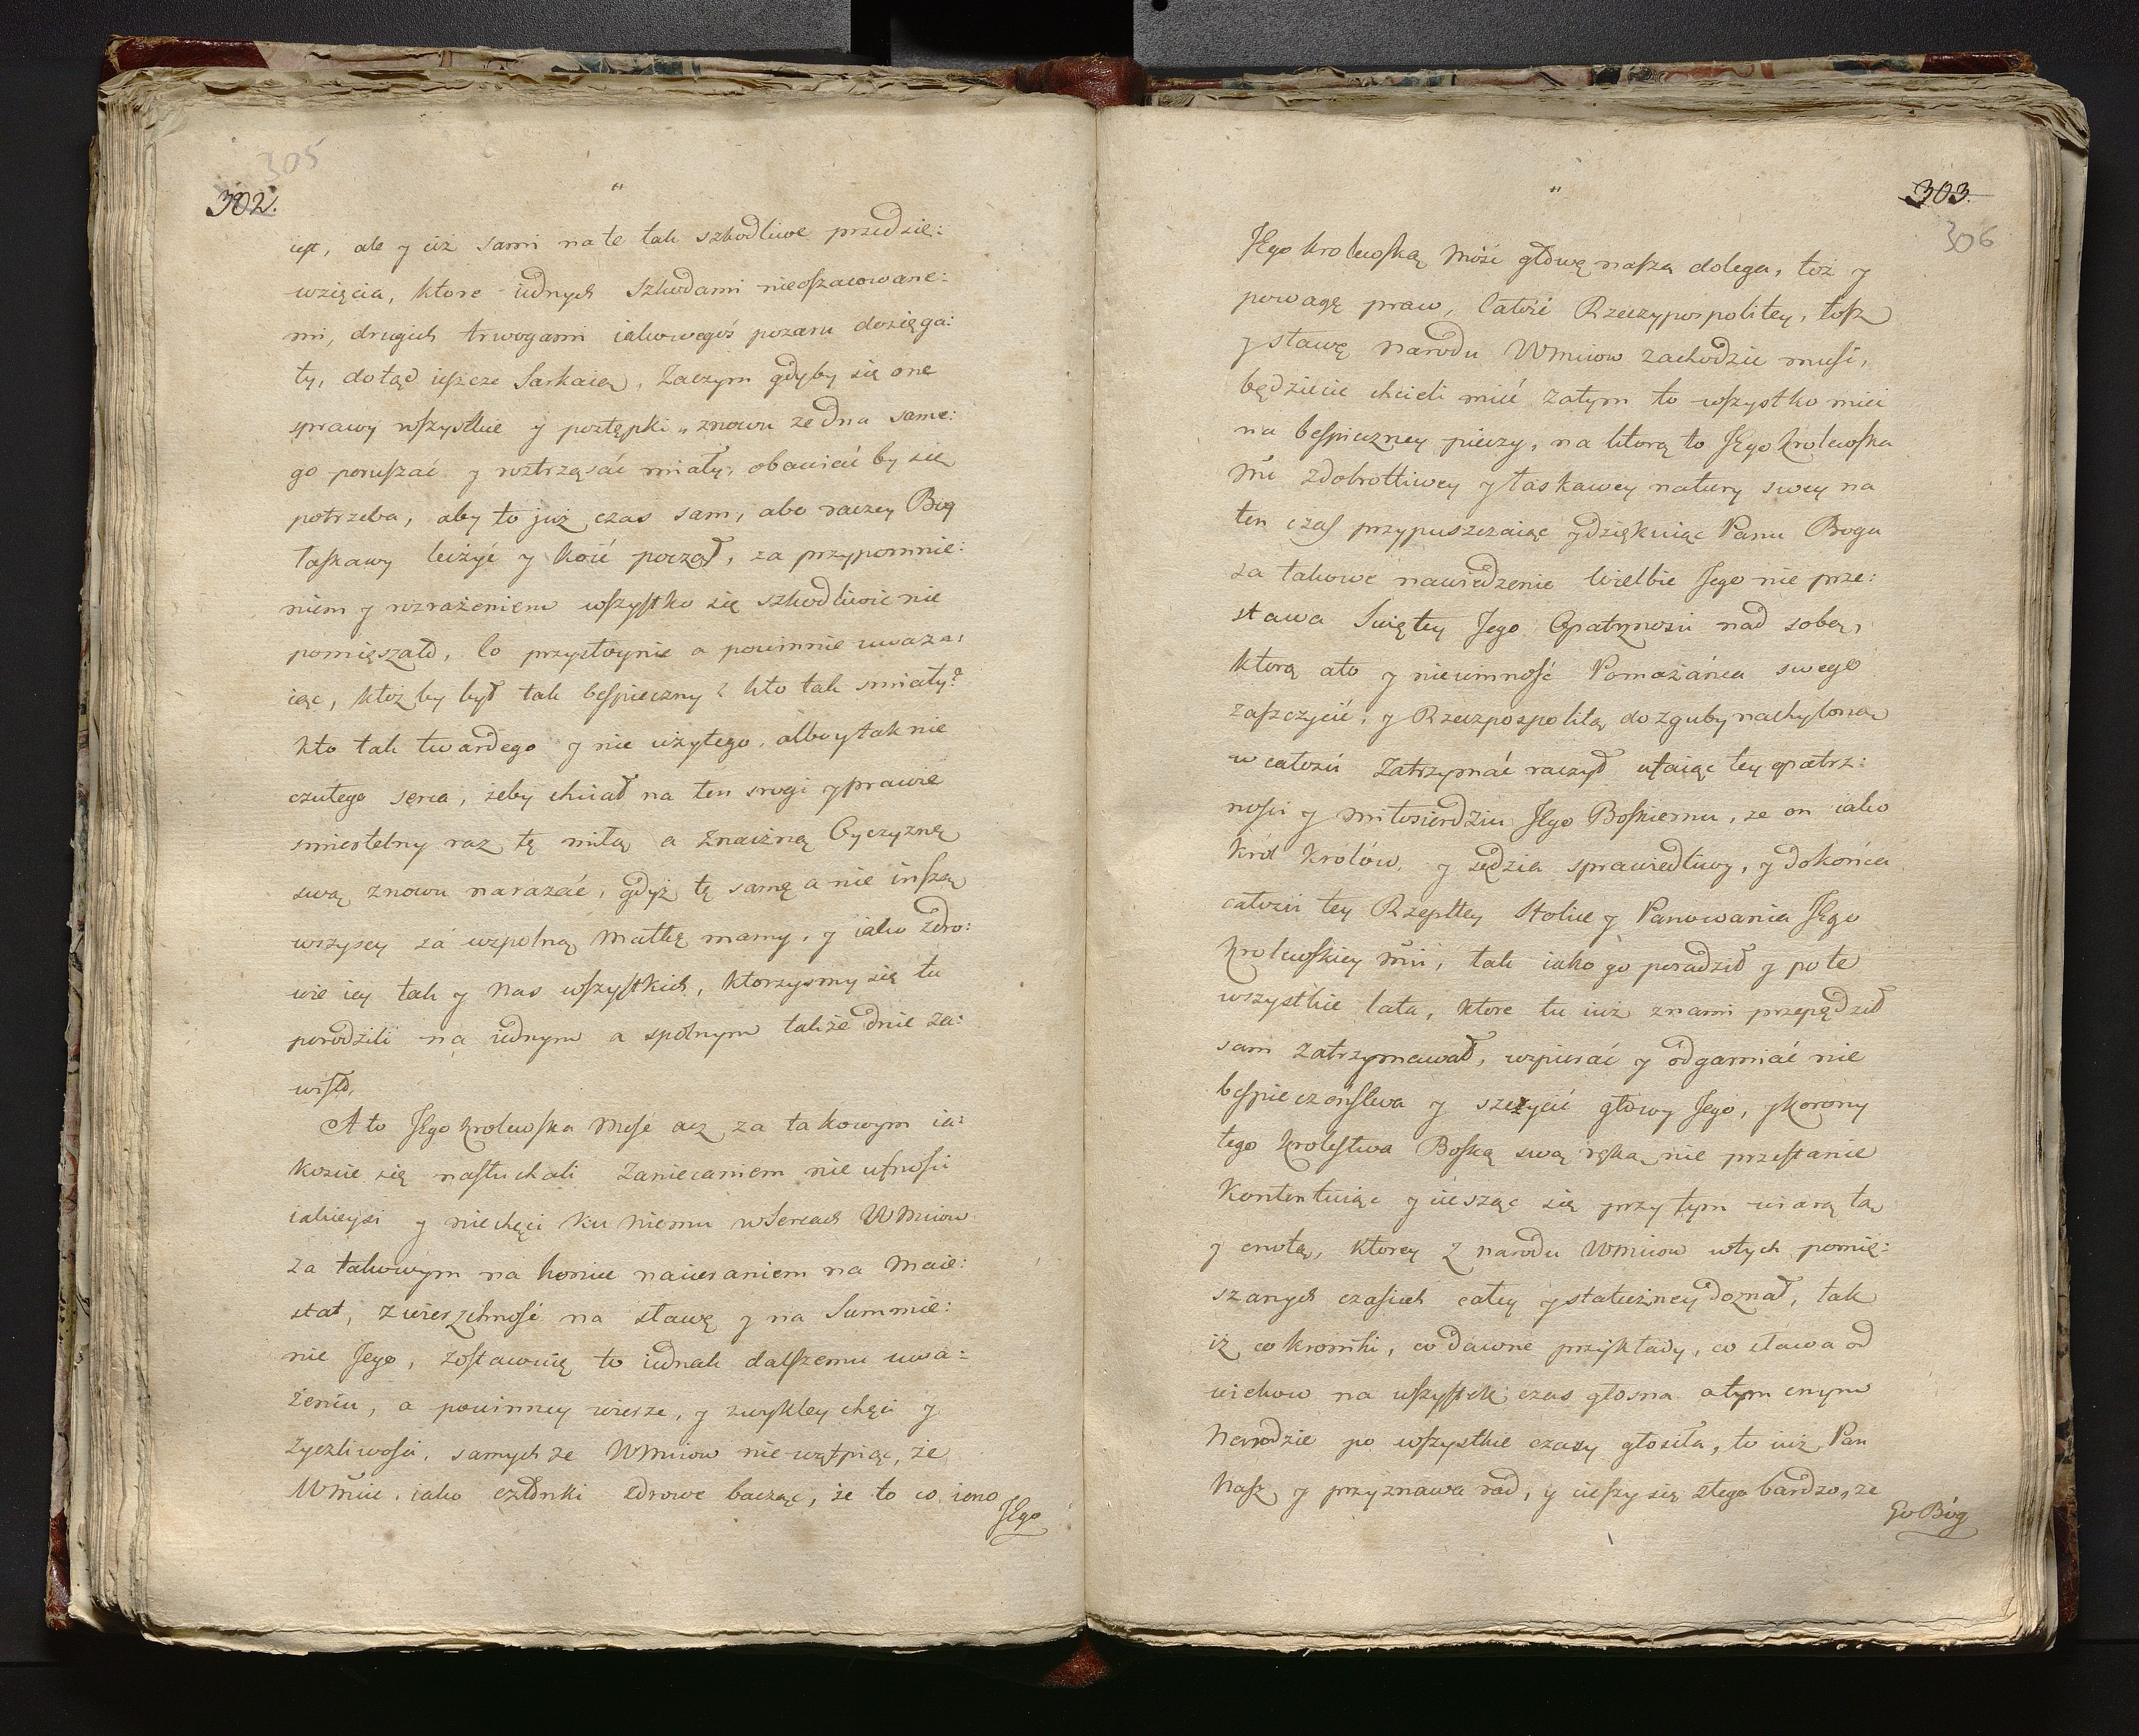 305
302.
iest, ale y iuż sami na te tak szkodliwe przedsię:
wzięcia, ktore iednych szkodami nieoszacowane:
mi, drugich trwogami iakowegoś pozaru dosięga:
ły, dotąd ieszcze Sarkaią, Zaczym gdyby się one
sprawy wszystkie y postępki „ znowu ze dna same:
go poruszać y roztrząsać miały, obawiać by się
potrzeba, aby to już czas sam, abo raczey Bog
łaskawy leczyć y koić począł, za przypomnie:
niem y rozrażeniem wszystko się szkodliwie nie
pomięszało, Co przystoynie a powinnie uważa:
iąc, ktoż by był tak bespieczny? kto tak smiały?
kto tak twardego y nie użytego, albo y tak nie
czułego serca, żeby chciał na ten srogi y prawie
smiertelny raz tę miłą a znaczną Oyczyznę
swą znowu narażać, gdyż tę samę a nie inszą
wszyscy za wspolną Matkę mamy, y iako zdro:
wie iey tak y Nas wszystkich, ktorzysmy się tu
porodzili na iednym a spolnym także dnie za:
wisło.
A to JEgo krolewska Mość acz za takowym ia:
koscie się nasłuchali zaniecaniem nie ufnosci
iakieysi y niechęci ku niemu w Sercach WMciow
za takowym na koniec nacieraniem na Maie:
stat, zwierzchność na sławę y na Summie:
nie Jego, zostawuię to iednak dalszemu uwa:
żeniu, a powinney wierze, y zwykley chęci y
życzliwosci, samych ze WMciow nie wątpiąc, że
WMcie, iako członki zdrowe bacząc, że to co ieno
JEgo
303.
306
JEgo krolewską Mość głowę naszą dolega, toż y
powagę praw, Całość Rzeczypospolitey, tosz
y sławę Narodu WMciow zachodzić musi,
będziecie chcieli mieć zatym to wszystko mieć
na bespieczney pieczy, na ktorą to JEgo krolewska
Mć z dobrotliwey y łaskawey natury swey na
ten czas przypuszczaiąc y dziękuiąc Panu Bogu
za takowe nawiedzenie Wielbić Jego nie prze:
stawa Swiętey Jego Opatrznosci nad sobą,
ktorą ato y niewinność Pomazańca swego
zaszczycić, y Rzeczpospolitą do zguby nachyloną
w całosci zatrzymać raczył ufaiąc tey opatrz:
nosci y miłosierdziu JEgo Boskiemu, ze on iako
Król Królów, y sędzia sprawiedliwy, y dokońca
całosci tey Rzeptey Stolice y Panowania JEgo
krolewskiey Mci, tak iako go poradził y po te
wszystkie lata, ktore tu iuż z nami przepędził
sam zatrzymawał, wspierać y odgarniać nie
bespieczeństwa y szczycić głowy Jego, y korony
tego krolestwa Boską swą ręką nie przestanie
Kontentuiąc y ciesząc się przy tym wiarą tą
y cnotą, ktorey z narodu WMciow w tych pomię:
szanych czasiech całey y stateczney doznał, tak
iż co kroniki, co dawne przykłady, co sława od
wiekow na wszystek czas głosna o tym cnym
Narodzie po wszystkie czasy głosiła, to iuż Pan
Nasz y przyznawa rad, y cieszy się z tego bardzo, ze
Go Bóg